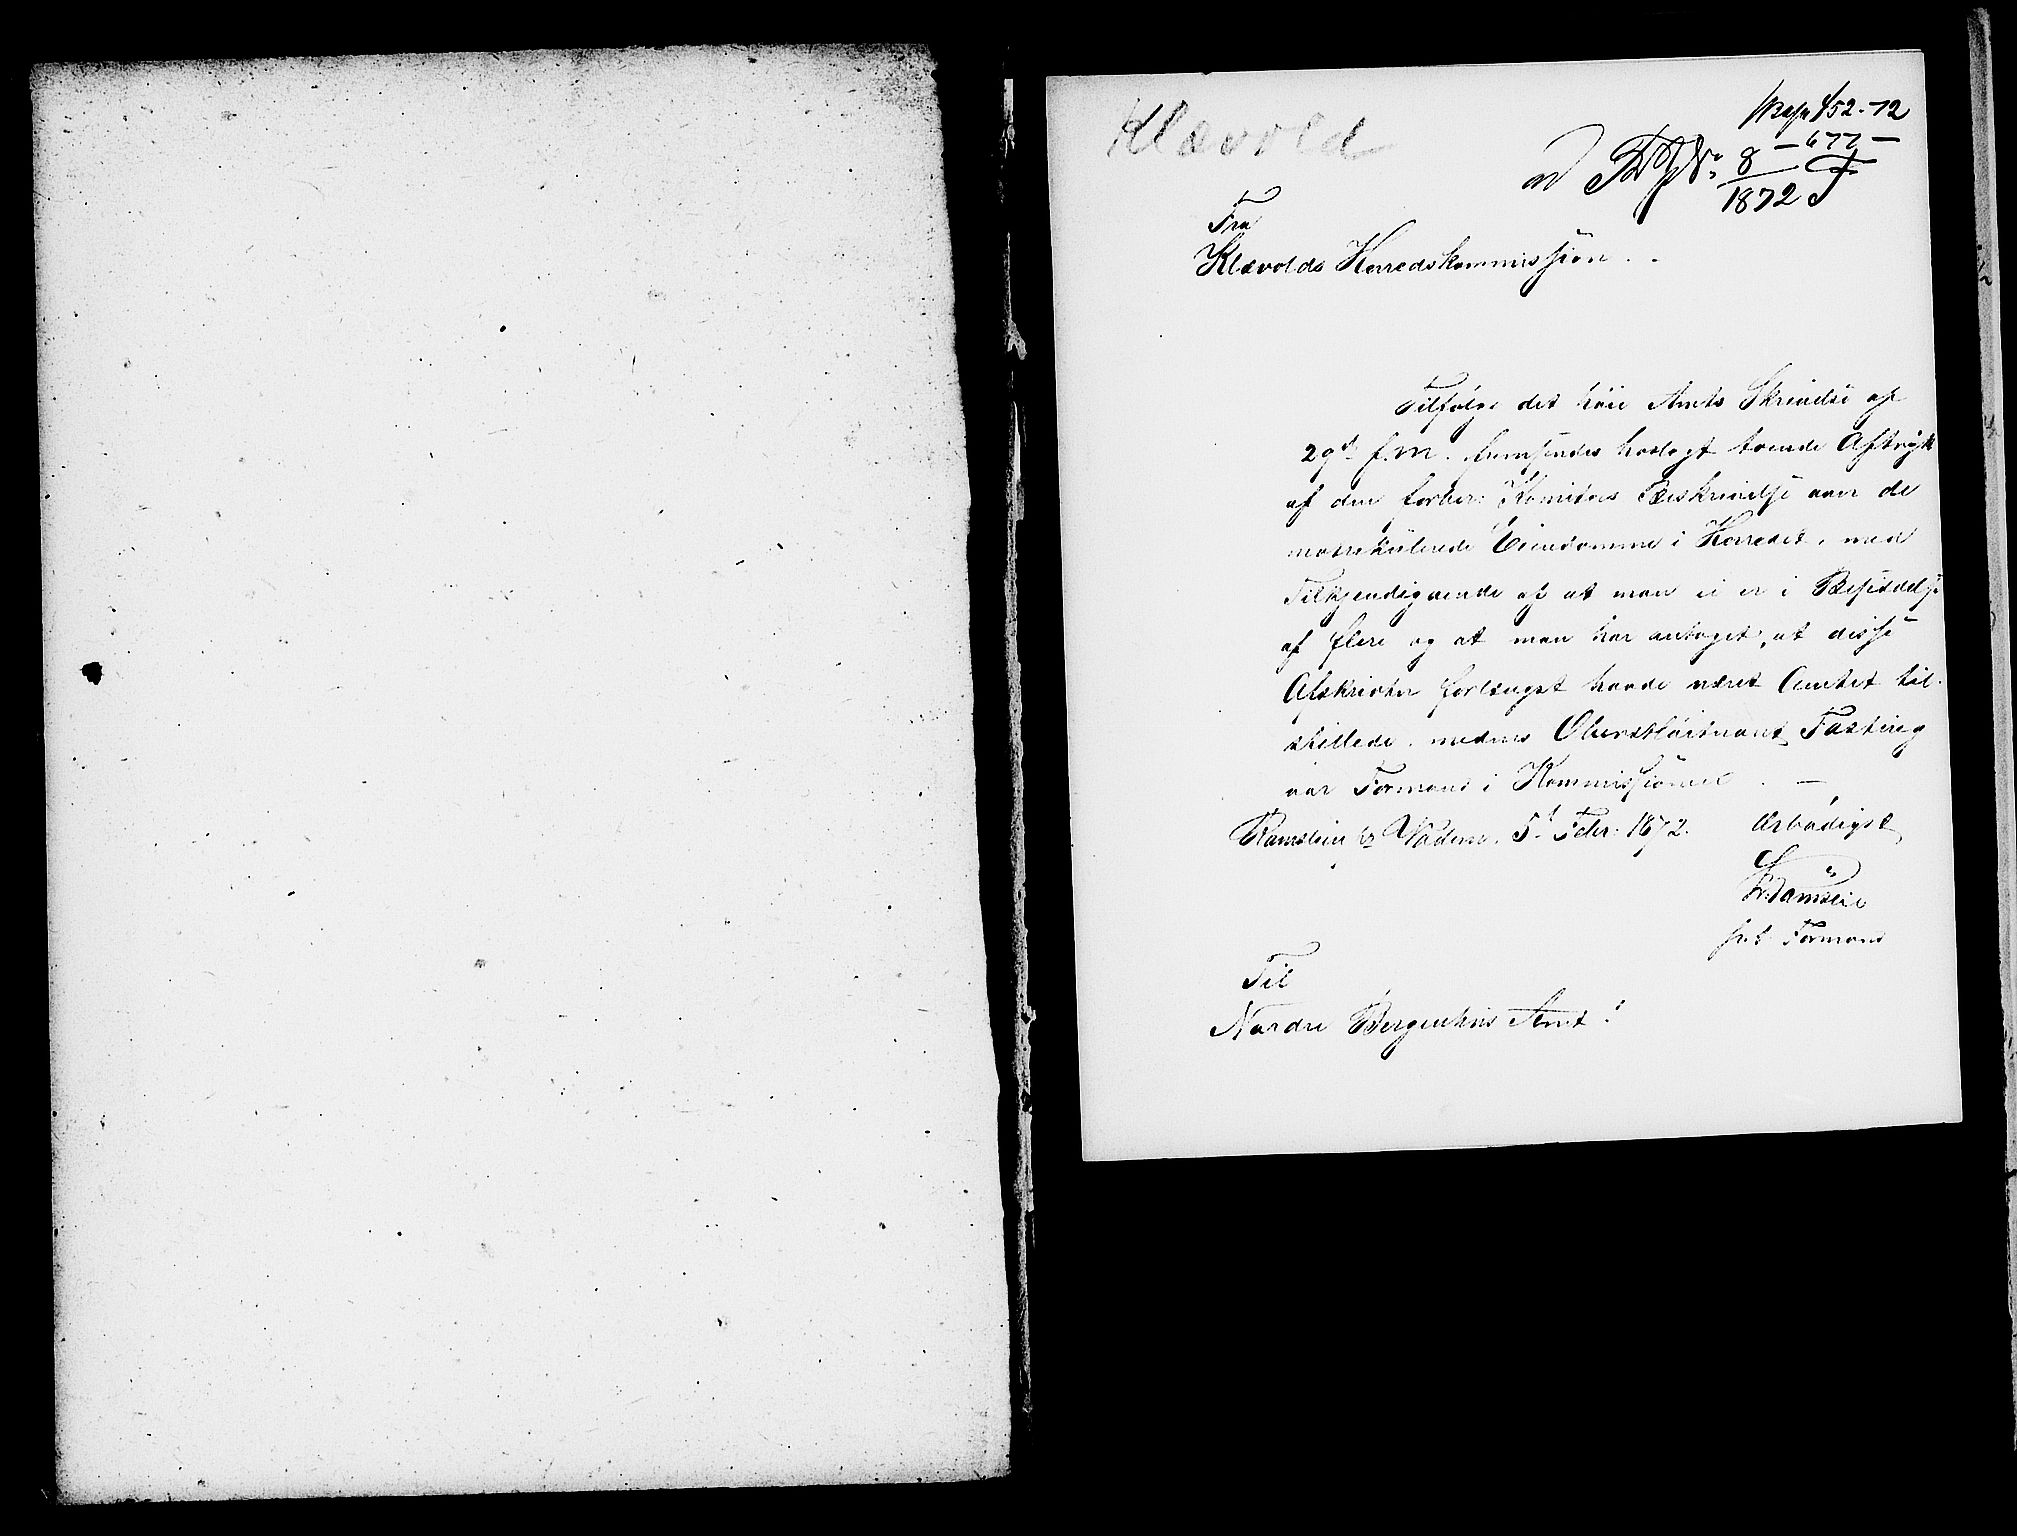 Klævold
452-72
-677-
8
1872
Fra
Klævolds Herredskommission
Tilfølge det høie Amts Skrivelse af
29d f.m. fremsendes hoslagt tvende Aftryk
af den forber: Komitees Beskrivelse over de
matrikulerede Eiendomme i Herredet, med
Tilkjendigivende af at man ei er i Besiddelse
af flere og at man har antaget, at disse
Afskrivter forlængst havde været Amtet til-
stillede, medens Oberstløitnant Fasting
var Formand i Kommissionen. —
Ramslien pr Vadem, 5d Febr: 1872. Ærbødigst
fut Formand
Til
Nordre Bergenhus Amt!